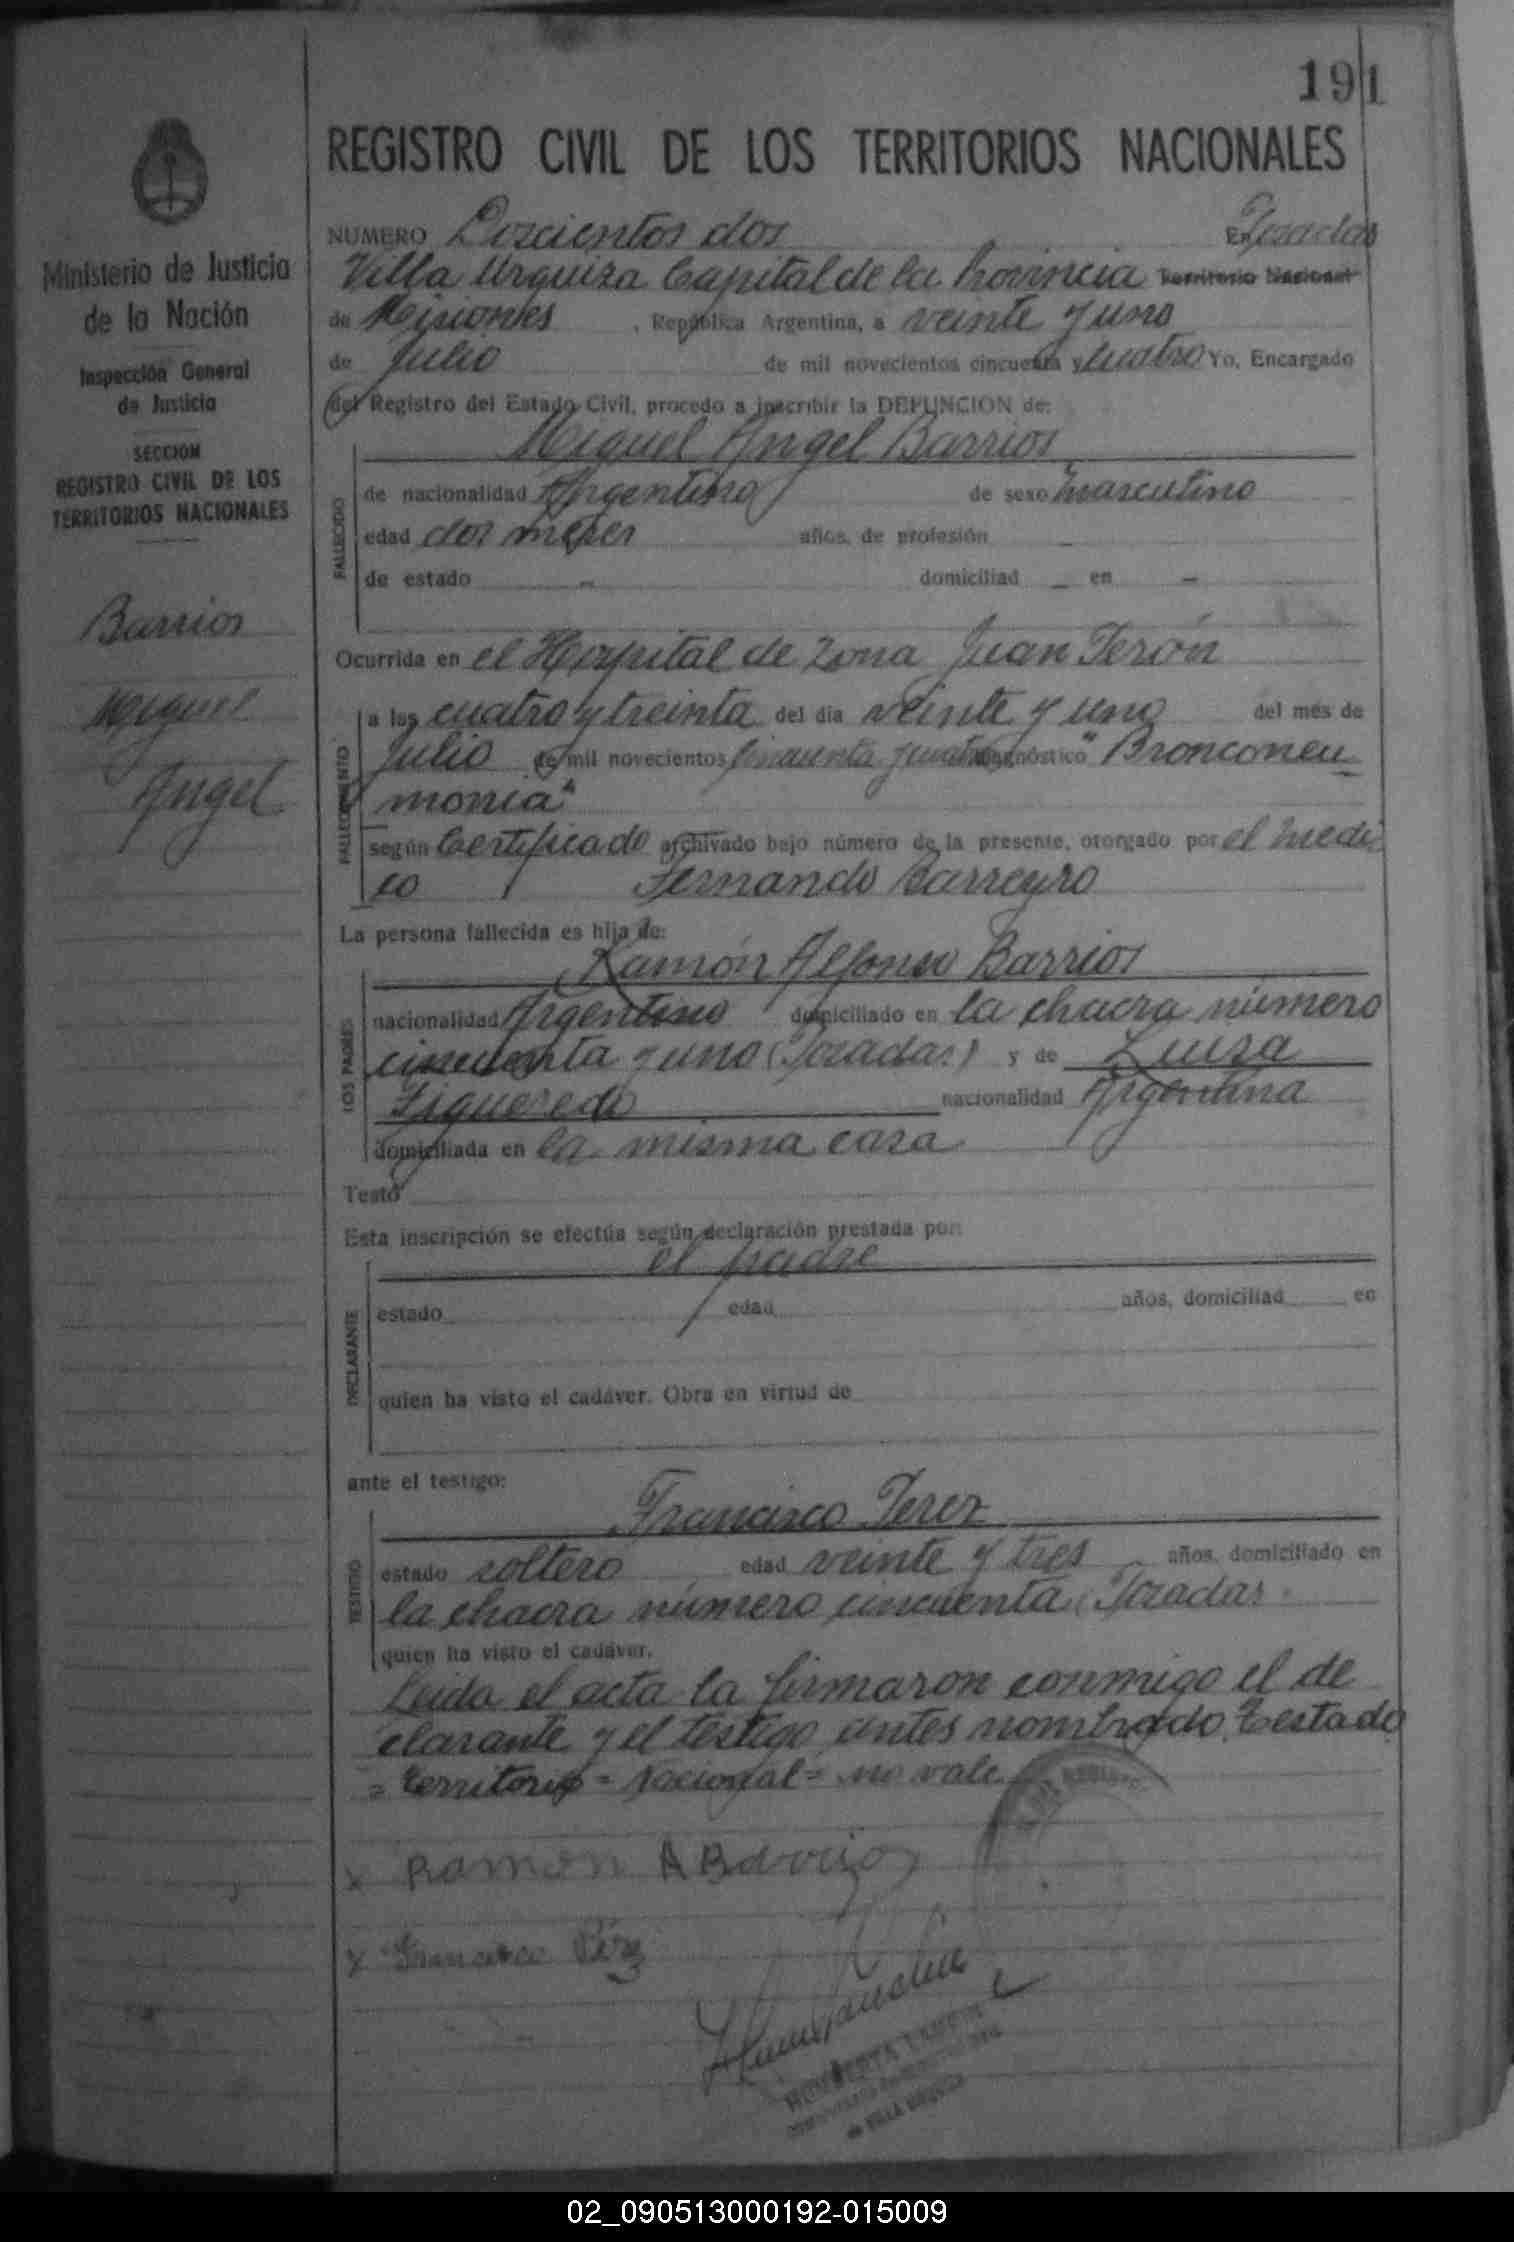 191
REGISTRO CIVIL DE LOS TERRITORIOS NACIONALES
Ministerio de Justicia
de la Nación
Inspección General
de Justicia
SECCION
REGISTRO CIVIL DE LOS
TERRITORIOS NACIONALES
Barrios
Miguel
Angel
NUMERO Doscientos dos En Posadas
Villa Urquiza Capital de la Provincia Territorio Nacional
de Misiones, República Argentina, a veinte y uno
de Julio de mil novecientos cincuenta y cuatro Yo, Encargado
del Registro del Estado Civil, procedo a inscribir la DEFUNCION de:
FALLECIDO
Miguel Angel Barrios
de nacionalidad Argentino de sexo masculino
edad dos meses años, de profesión -
de estado - domiciliad - en -
Ocurrida en el Hospital de Zona Juan Perón
FALLECIMIENTO
a las cuatro y treinta del día veinte y uno del mes de
Julio de mil novecientos cincuenta y cuatro diagnóstico "Bronconeu
monia"
según Certificado archivado bajo número de la presente, otorgado por el médi
co Fernando Barreyro
La persona fallecida es hija de:
LOS PADRES
Ramón Alfonso Barrios
nacionalidad Argentino domiciliado en la chacra número
cincuenta y uno (Posadas) y de Luisa
Figueredo nacionalidad Argentina
domiciliada en la misma casa
Testó
Esta inscripción se efectúa según declaración prestada por:
DECLARANTE
el padre
estado edad años, domiciliad en
quien ha visto el cadáver. Obra en virtud de
ante el testigo:
TESTIGO
Francisco Perez
estado soltero edad veinte y tres años, domiciliado en
la chacra número cincuenta (Posadas
quien ha visto el cadáver.
Leída el acta la firmaron conmigo el de
clarante y el testigo antes nombrado. Testado
= territorio = Nacional = no vale
x Ramon A Barrios
x Francisco Pérez
de VILLA URQUIZA
02_090513000192-015009